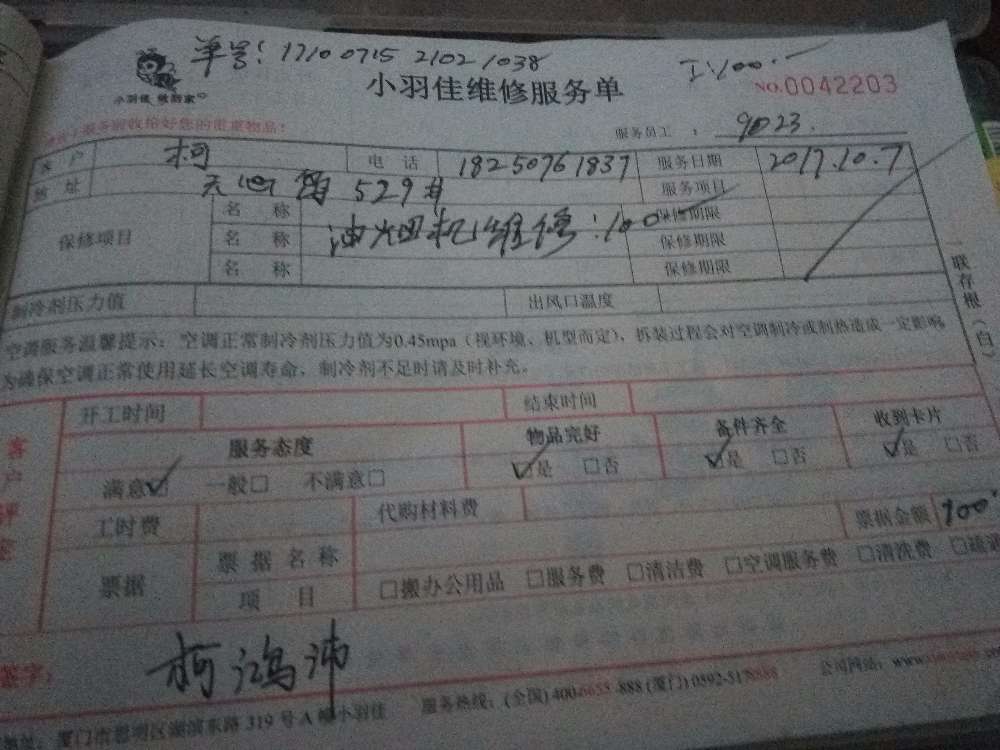 单号: 17100715 2102 1038
工:100.-
小羽佳 维修家
小羽佳维修服务单
NO.0042203
服务前收拾好您的贵重物品!
服务员工 : 9023.
客户 柯 电话 18250761837 服务日期 2017.10.7
地址 529# 服务项目
保修项目 名称 油烟机维修:100 保修期限
名称 保修期限
名称 保修期限
制冷剂压力值 出风口温度
一联存根(白)
空调服务温馨提示:空调正常制冷剂压力值为0.45mpa(视环境、机型而定),拆装过程会对空调制冷或制热造成一定影响
为确保空调正常使用延长空调寿命,制冷剂不足时请及时补充。
客户
开工时间 结束时间
服务态度 物品完好 备件齐全 收到卡片
满意☑ 一般□ 不满意□ ☑是 □否 ☑是 □否 ☑是 □否
工时费 代购材料费 票据金额 100
票据 票据名称
项目 □搬办公用品 □服务费 □清洁费 □空调服务费 □清洗费
签字: 柯鸿沛
地址:厦门市思明区湖滨东路 319 号 A 幢小羽佳 服务热线:(全国) 400-6655-888 (厦门) 0592-5178888 公司网站:www.